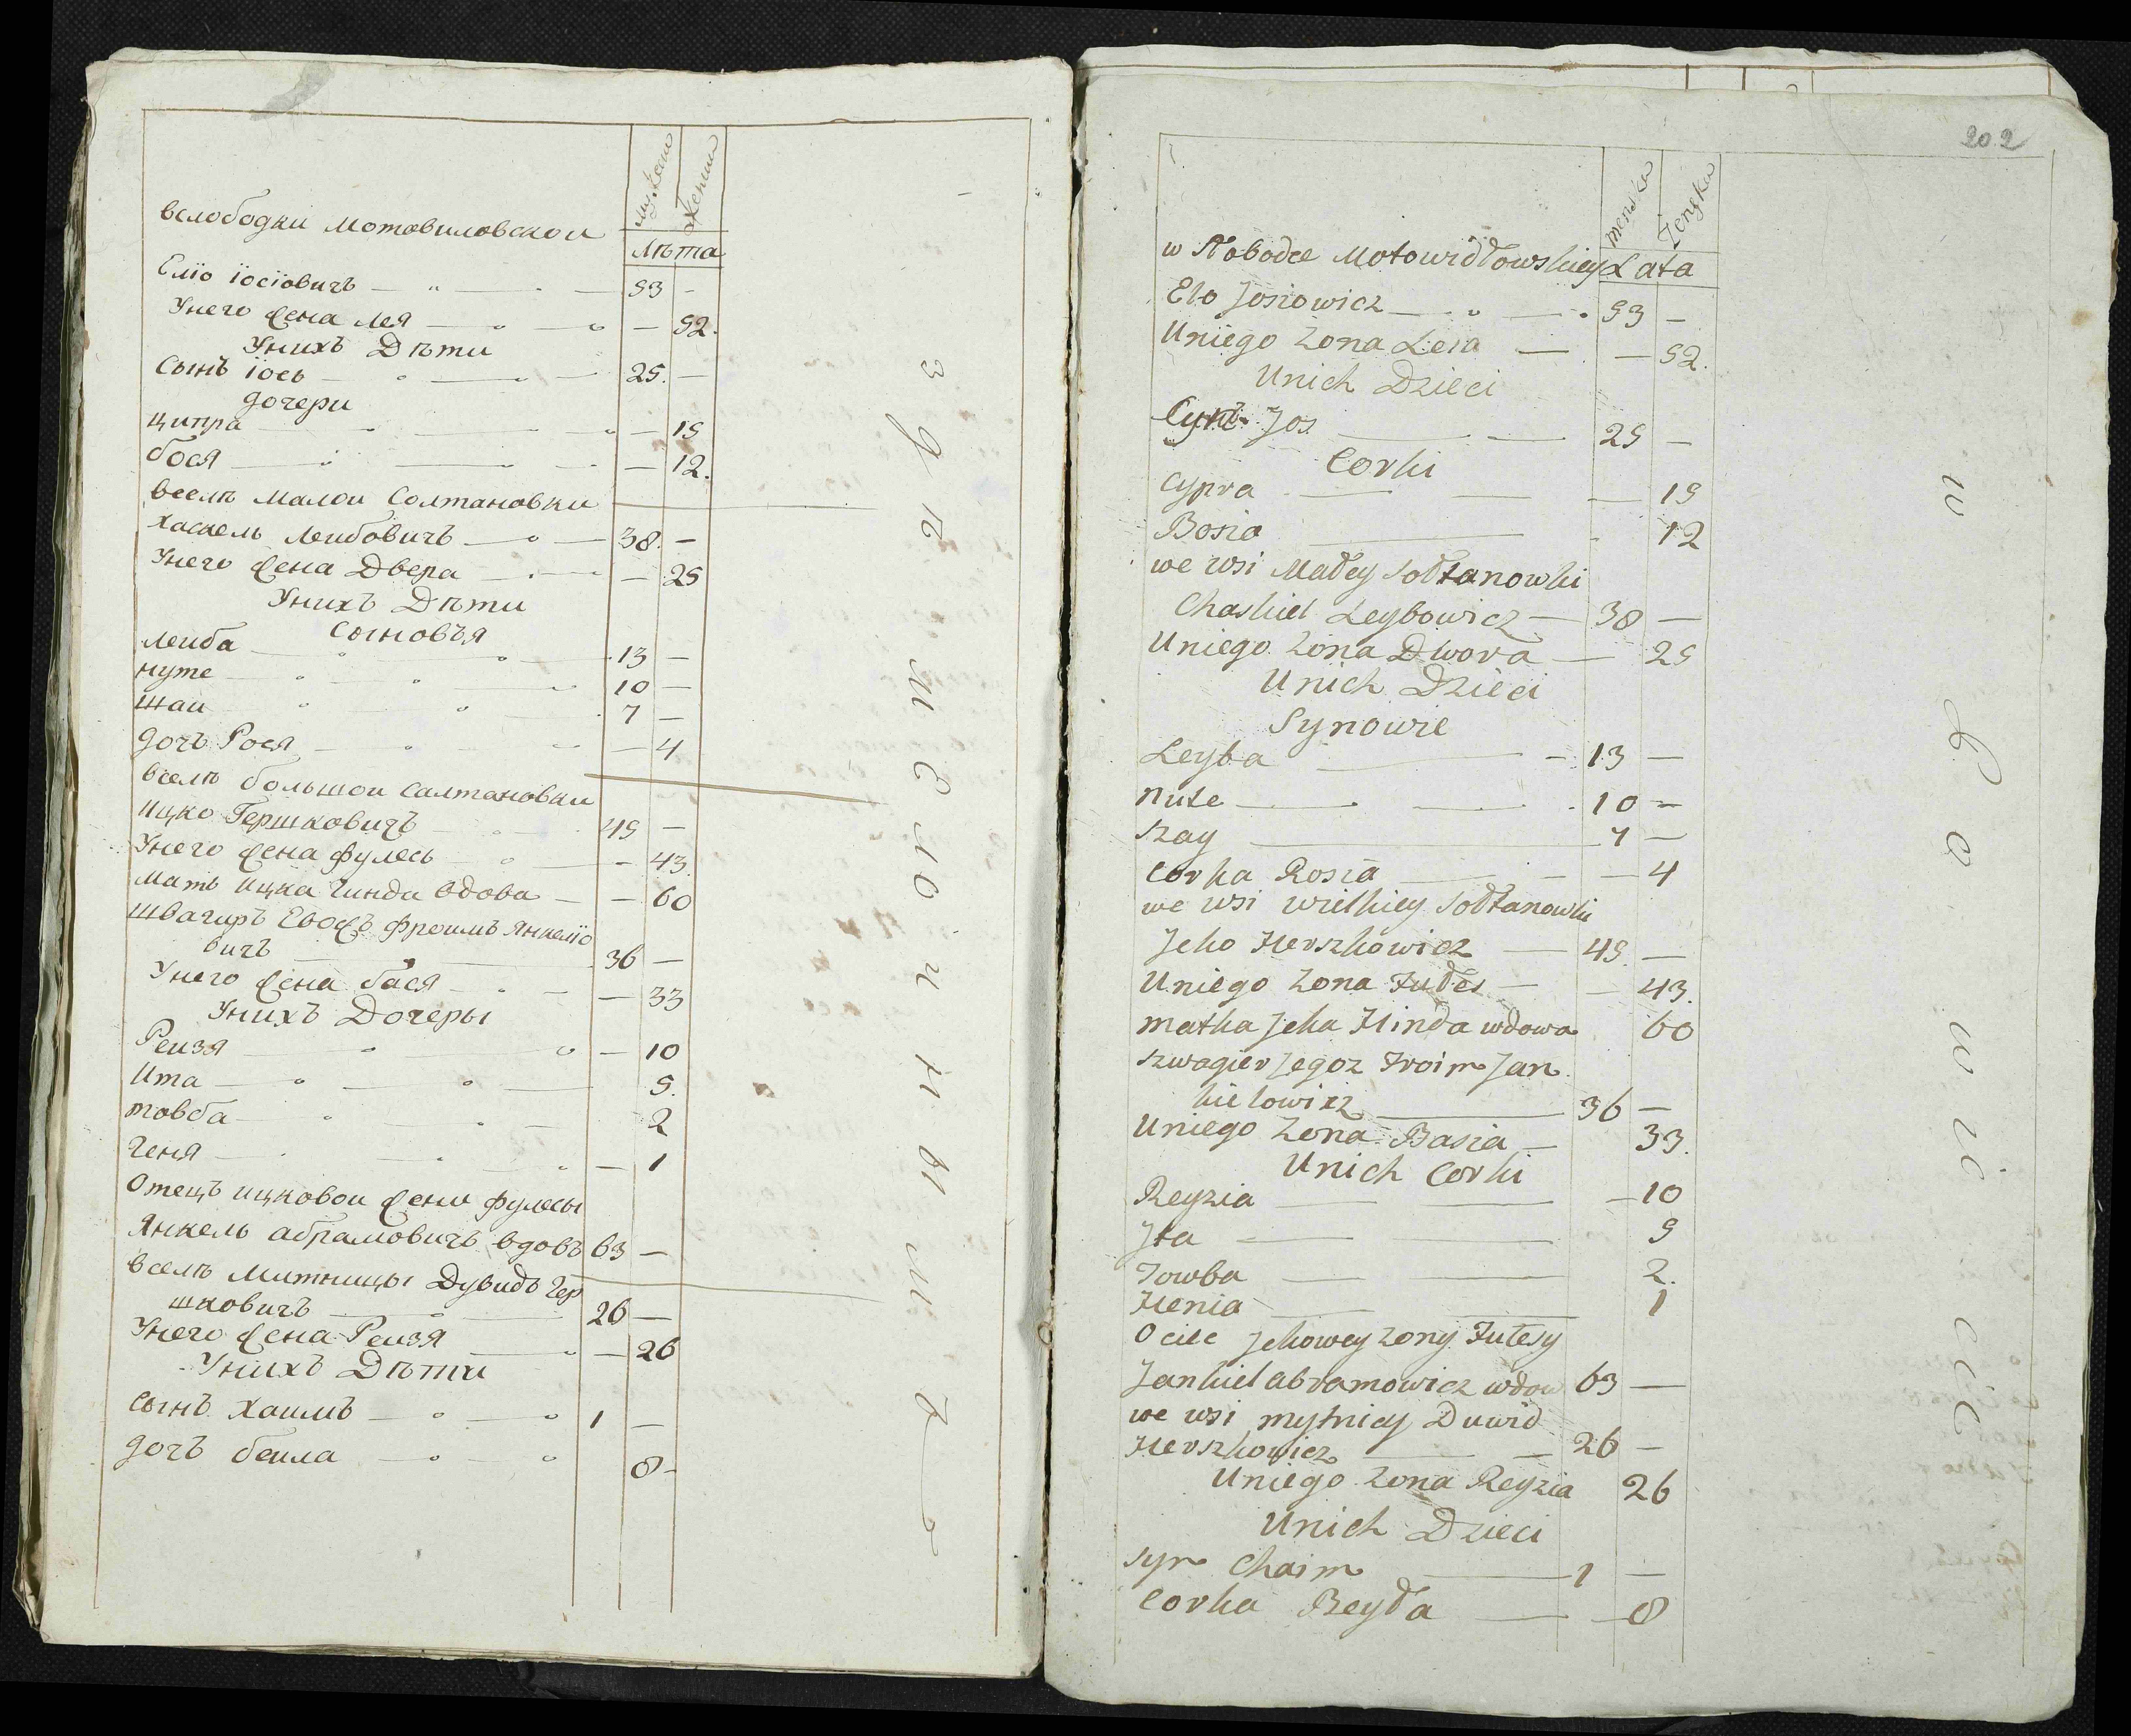 мужеск женск
вслободки мотовиловскои
Лѣта
Еліо іосіовичъ 53 —
Унего жена лея — 52.
Унихъ Дѣти
Сынъ іось 25. —
дочери
ципра — 15
бося — 12.
вселѣ малои Солтановки
хаскель леибовичъ 38. —
Унего жена Двера — 25
Унихъ Дѣти
Сыновъя
леиба 13 —
нуте 10 —
шаи 7 —
дочъ Рося — 4
вселѣ большои салтановки
ицко Гершковичъ 45 —
Унего жена фулесь — 43.
мать ицка Гинда вдова — 60
швагиръ Евожъ фроимъ янкеліо
вичъ 36 —
Унего жена бася — 33
Унихъ Дочеры
Реизя — 10
Ита 5.
товба 2
Геня — 1
Отецъ ицковои жени фулесы
янкель абрамовичъ вдовъ 63 —
вселѣ митницы Дувидъ Гер
шковичъ 26 —
Унего жена Реизя — 26
Унихъ Дѣти
сынъ хаимъ 1 —
дочъ беила 8 —
202
menska Żenska
w Słobodce Motowidłowskiey Lata
Elo Josiowicz 53 —
Uniego Zona Leia — 52.
Unich Dzieci
Jos 25 —
Corki
Cypra — 15
Bosia 12
we wsi Małey Sołtanowki
Chaskiel Leybowicz 38 —
Uniego Zona Dwora — 25
Unich Dzieci
Synowie
Leyba 13 —
Nute 10 —
Szay 7 —
Corka Rosia — 4
we wsi wielkiey Sołtanowki
Jcko Herszkowicz 45. —
Uniego Zona Fułes — 43.
matka Jcka Hinda wdowa 60
szwagier Jegoz Froim Jan
kielowicz 36 —
Uniego Zona Basia — 33.
Unich Corki
Reyzia — 10
Jta 5
Towba 2.
Henia 1
Ociec Jckowey Zony Fułesy
Jankiel abramowicz wdow 63 —
we wsi mytnicy Duwid
Herszkowicz 26 —
Uniego Zona Reyzia 26
Unich Dzieci
syn Chaim 1 —
Corka Beyła — 8